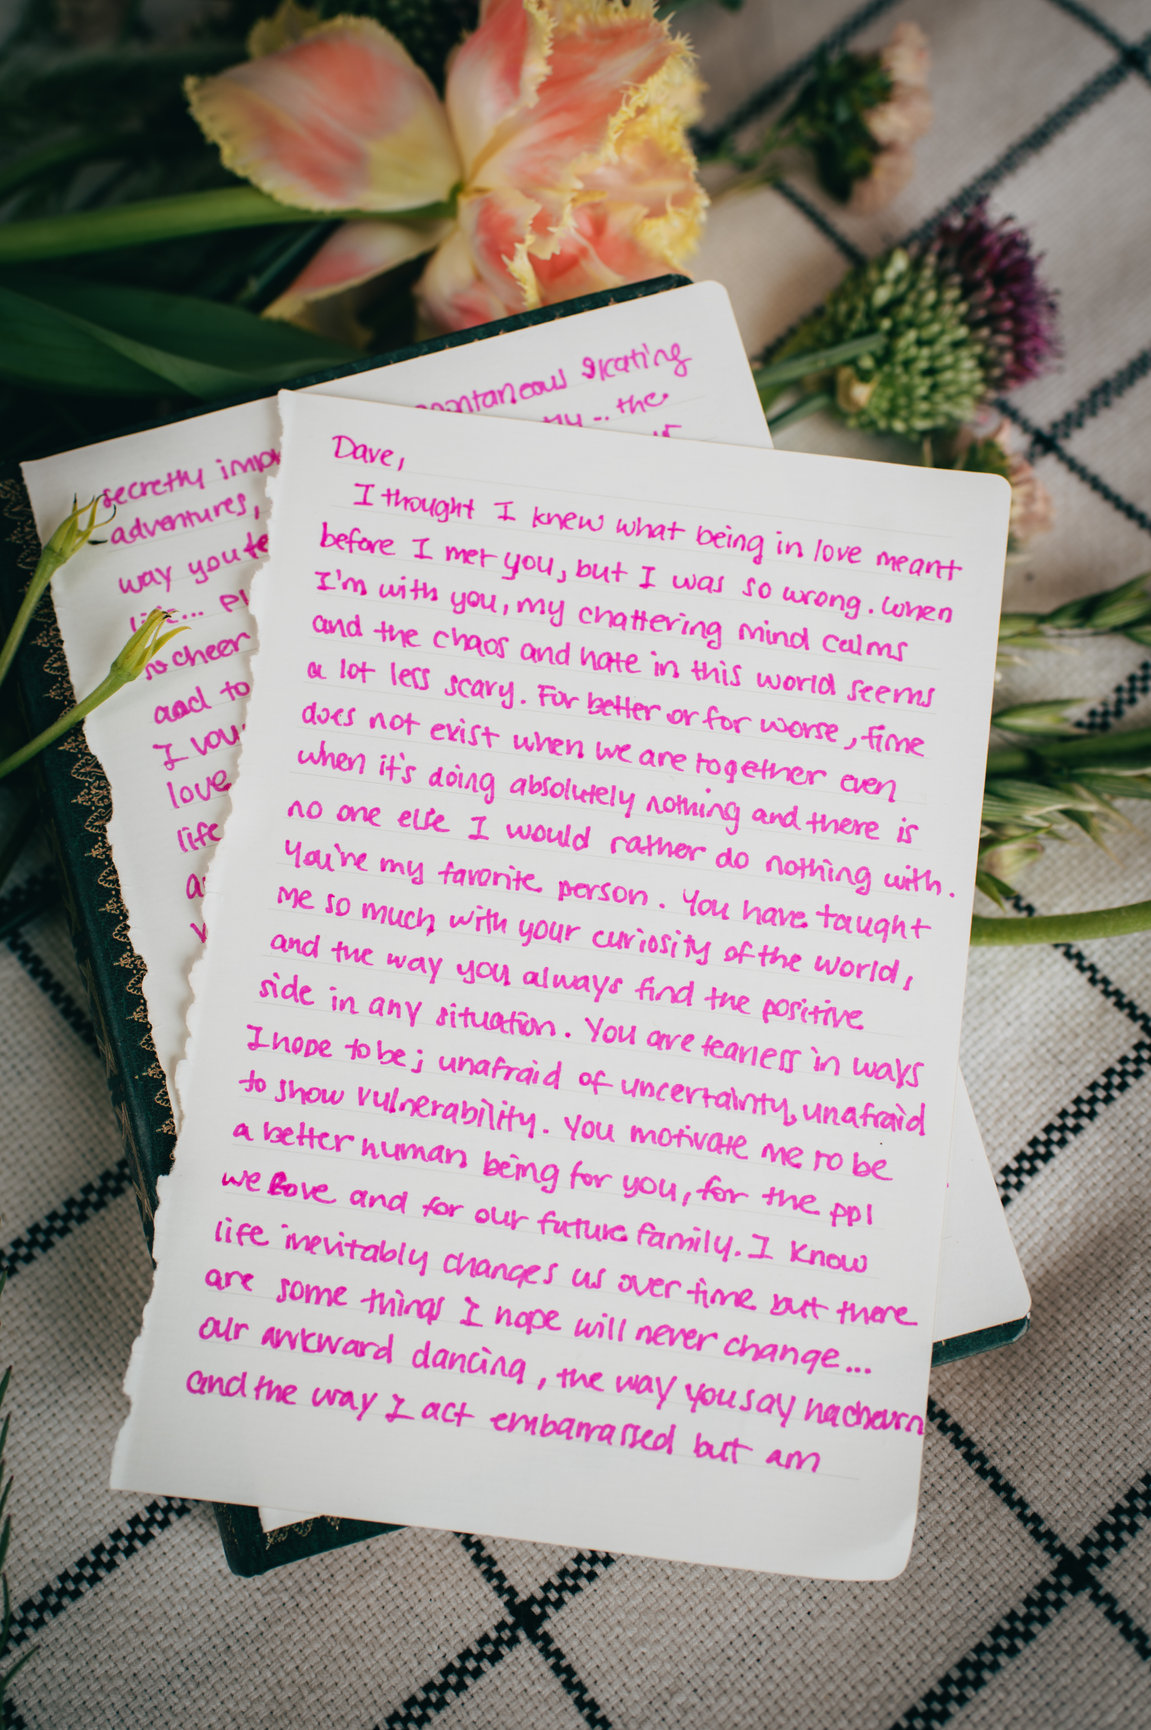 Dave,
I thought I knew what being in love meant
before I met you, but I was so wrong. When
I'm with you, my chattering mind calms
and the chaos and hate in this world seems
a lot less scary. For better or for worse, time
does not exist when we are together even
when it's doing absolutely nothing and there is
no one else I would rather do nothing with.
You're my favorite person. You have taught
me so much with your curiosity of the world,
and the way you always find the positive
side in any situation. You are fearless in ways
I hope to be; unafraid of uncertainty, unafraid
to show vulnerability. You motivate me to be
a better human being for you, for the ppl
we love and for our future family. I know
life inevitably changes us over time but there
are some things I hope will never change...
our awkward dancing, the way you say
and the way I act embarrassed but am
skating
the
secretly
adventures,
way you
cheer
and to
I
love
life